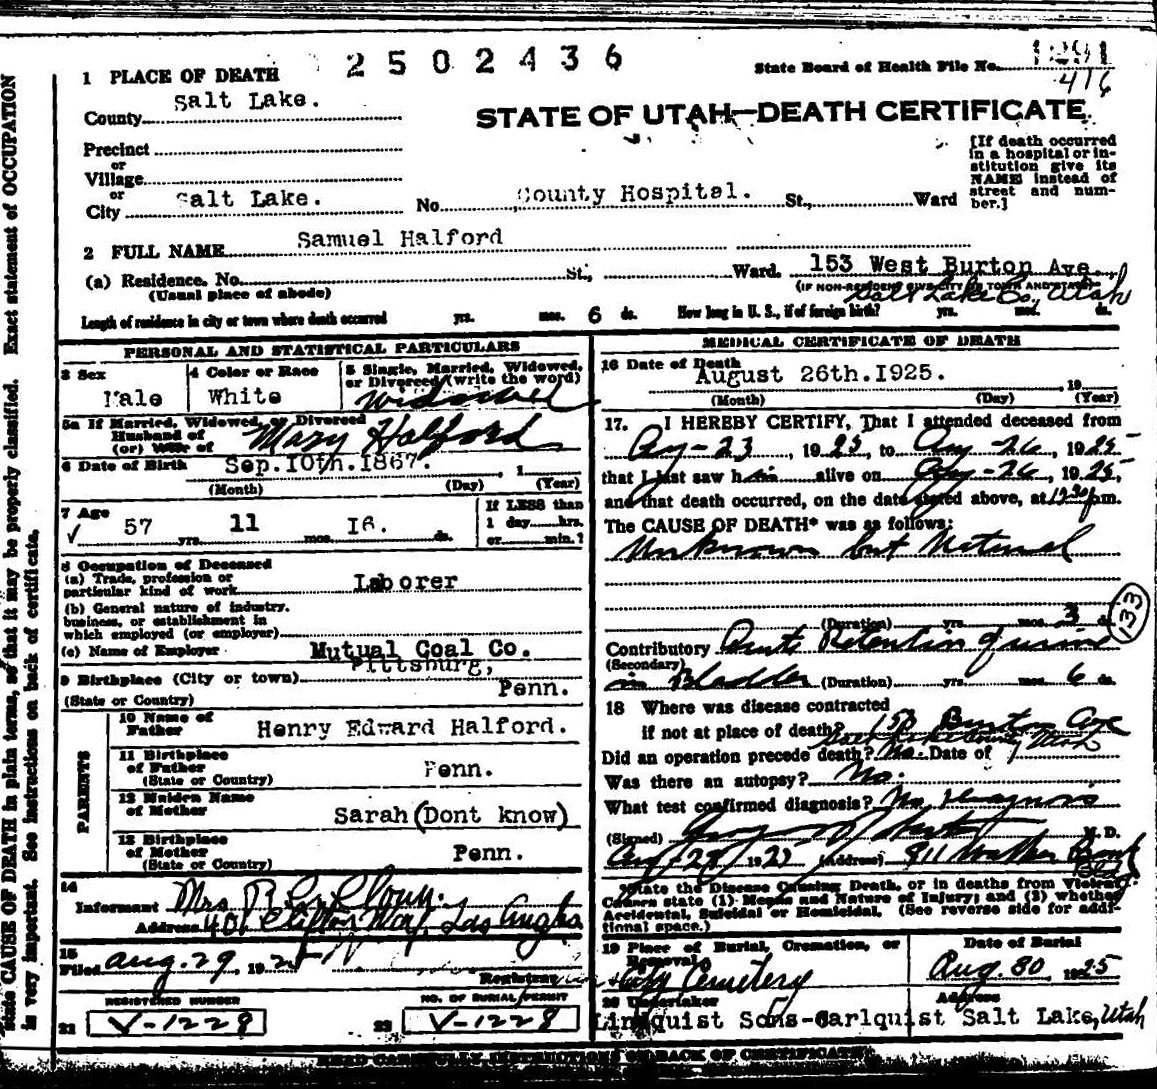 2502436
State Board of Health File No. 1291
416
1 PLACE OF DEATH
County Salt Lake.
STATE OF UTAH—DEATH CERTIFICATE
Precinct
or
Village
or
City Salt Lake. No. County Hospital. St., Ward
[If death occurred
in a hospital or in-
stitution give its
NAME instead of
street and num-
ber.]
2 FULL NAME Samuel Halford
(a) Residence. No. St., Ward. 153 West Burton Ave.,
(Usual place of abode)
(IF NON-RESIDENT GIVE CITY OR TOWN AND STATE)
Salt Lake Co., Utah
Length of residence in city or town where death occurred yrs. mos. 6 ds. How long in U. S., if of foreign birth? yrs. mos. ds.
PERSONAL AND STATISTICAL PARTICULARS
3 Sex
Male
4 Color or Race
White
5 Single, Married, Widowed,
or Divorced (write the word)
Widowed
5a If Married, Widowed, or Divorced
Husband of
(or) Wife of
Mary Halford
6 Date of Birth Sep.10th.1867. , 1
(Month) (Day) (Year)
7 Age
57 yrs. 11 mos. 16. ds.
If LESS than
1 day hrs.
or min.?
8 Occupation of Deceased
(a) Trade, profession or
particular kind of work Laborer
(b) General nature of industry,
business, or establishment in
which employed (or employer)
(c) Name of Employer Mutual Coal Co.
9 Birthplace (City or town) Pittsburg,
(State or Country) Penn.
PARENTS
10 Name of
Father Henry Edward Halford.
11 Birthplace
of Father
(State or Country) Penn.
12 Maiden Name
of Mother Sarah (Dont know)
13 Birthplace
of Mother
(State or Country) Penn.
14
Informant Mrs
Address 401 Clifton Way, Los Angles
15
Filed Aug. 29, 1925
Registrar
REGISTERED NUMBER
21 V-1229
NO. OF BURIAL PERMIT
22 V-1228
MEDICAL CERTIFICATE OF DEATH
16 Date of Death
August 26th.1925. , 19
(Month) (Day) (Year)
17. I HEREBY CERTIFY, That I attended deceased from
Aug-23, 1925, to Aug-26, 1925
that I last saw him alive on Aug-26, 1925,
and that death occurred, on the date stated above, at 12:30 pm.
The CAUSE OF DEATH* was as follows:
Unknown but Natural
(Duration) yrs. mos. 3 ds.
133
Contributory Acute Retention of urine
(Secondary)
in Bladder (Duration) yrs. mos. 6 ds.
18 Where was disease contracted
if not at place of death? 153 Burton Ave
Salt Lake County Utah
Did an operation precede death? No. Date of
Was there an autopsy? No.
What test confirmed diagnosis? No diagnosis
(Signed) M. D.
Aug-28, 1925 (Address) 911 Walker Bank
Bldg
*State the Disease Causing Death, or in deaths from Violent
Causes state (1) Means and Nature of Injury; and (2) whether
Accidental, Suicidal or Homicidal. (See reverse side for addi-
tional space.)
19 Place of Burial, Cremation, or
Removal
City Cemetery
Date of Burial
Aug. 30, 1925
20 Undertaker
Lindquist Sons-Carlquist
Address
Salt Lake, Utah
READ CAREFULLY INSTRUCTIONS ON BACK OF CERTIFICATE
State CAUSE OF DEATH in plain terms, so that it may be properly classified. Exact statement of OCCUPATION
is very important. See instructions on back of certificate.